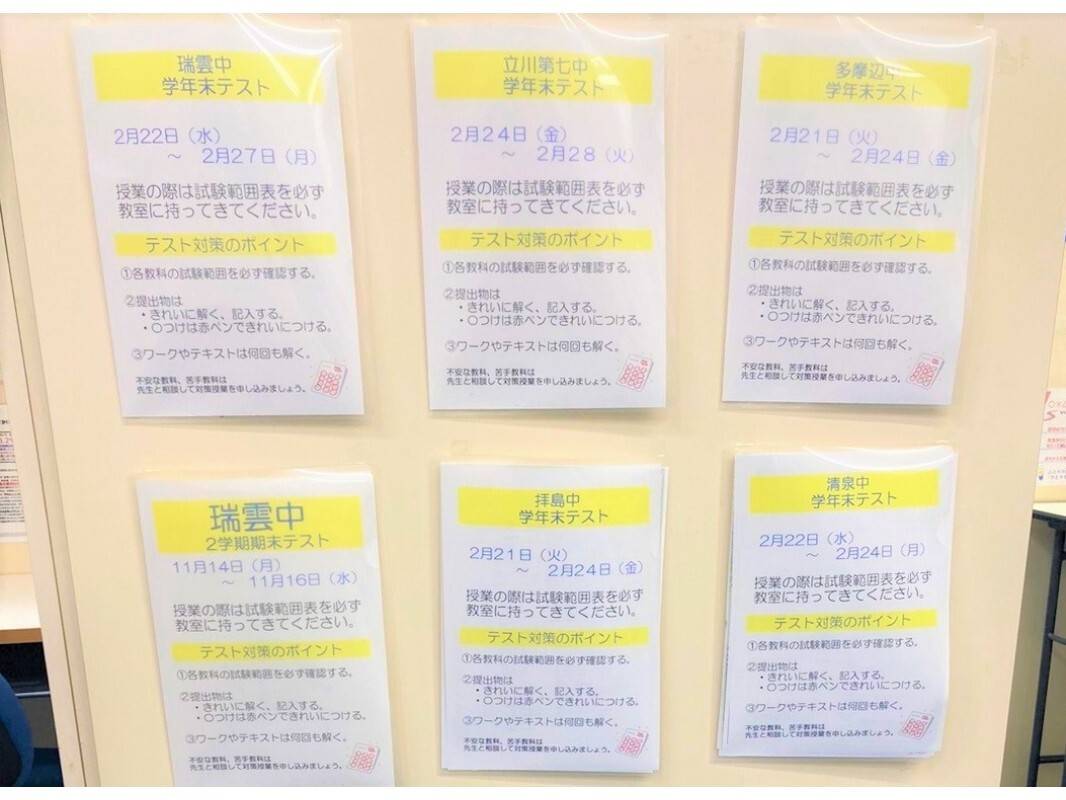 瑞雲中
学年末テスト
2月22日（水）
～ 2月27日（月）
授業の際は試験範囲表を必ず
教室に持ってきてください。
テスト対策のポイント
①各教科の試験範囲を必ず確認する。
②提出物は
・きれいに解く、記入する。
・〇つけは赤ペンできれいにつける。
③ワークやテキストは何回も解く。
不安な教科、苦手教科は
先生と相談して対策授業を申し込みましょう。
立川第七中
学年末テスト
2月24日（金）
～ 2月28（火）
授業の際は試験範囲表を必ず
教室に持ってきてください。
テスト対策のポイント
①各教科の試験範囲を必ず確認する。
②提出物は
・きれいに解く、記入する。
・〇つけは赤ペンできれいにつける。
③ワークやテキストは何回も解く。
不安な教科、苦手教科は
先生と相談して対策授業を申し込みましょう。
多摩辺中
学年末テスト
2月21日（火）
～ 2月24日（金）
授業の際は試験範囲表を必ず
教室に持ってきてください。
テスト対策のポイント
①各教科の試験範囲を必ず確認する。
②提出物は
・きれいに解く、記入する。
・〇つけは赤ペンできれいにつける。
③ワークやテキストは何回も解く。
不安な教科、苦手教科は
先生と相談して対策授業を申し込みましょう。
瑞雲中
2学期期末テスト
11月14日（月）
～ 11月16日（水）
授業の際は試験範囲表を必ず
教室に持ってきてください。
テスト対策のポイント
①各教科の試験範囲を必ず確認する。
②提出物は
・きれいに解く、記入する。
・〇つけは赤ペンできれいにつける。
③ワークやテキストは何回も解く。
不安な教科、苦手教科は
先生と相談して対策授業を申し込みましょう。
拝島中
学年末テスト
2月21日（火）
～ 2月24日（金）
授業の際は試験範囲表を必ず
教室に持ってきてください。
テスト対策のポイント
①各教科の試験範囲を必ず確認する。
②提出物は
・きれいに解く、記入する。
・〇つけは赤ペンできれいにつける。
③ワークやテキストは何回も解く。
不安な教科、苦手教科は
先生と相談して対策授業を申し込みましょう。
清泉中
学年末テスト
2月22日（水）
～ 2月24日（月）
授業の際は試験範囲表を必ず
教室に持ってきてください。
テスト対策のポイント
①各教科の試験範囲を必ず確認する。
②提出物は
・きれいに解く、記入する。
・〇つけは赤ペンできれいにつける。
③ワークやテキストは何回も解く。
不安な教科、苦手教科は
先生と相談して対策授業を申し込みましょう。